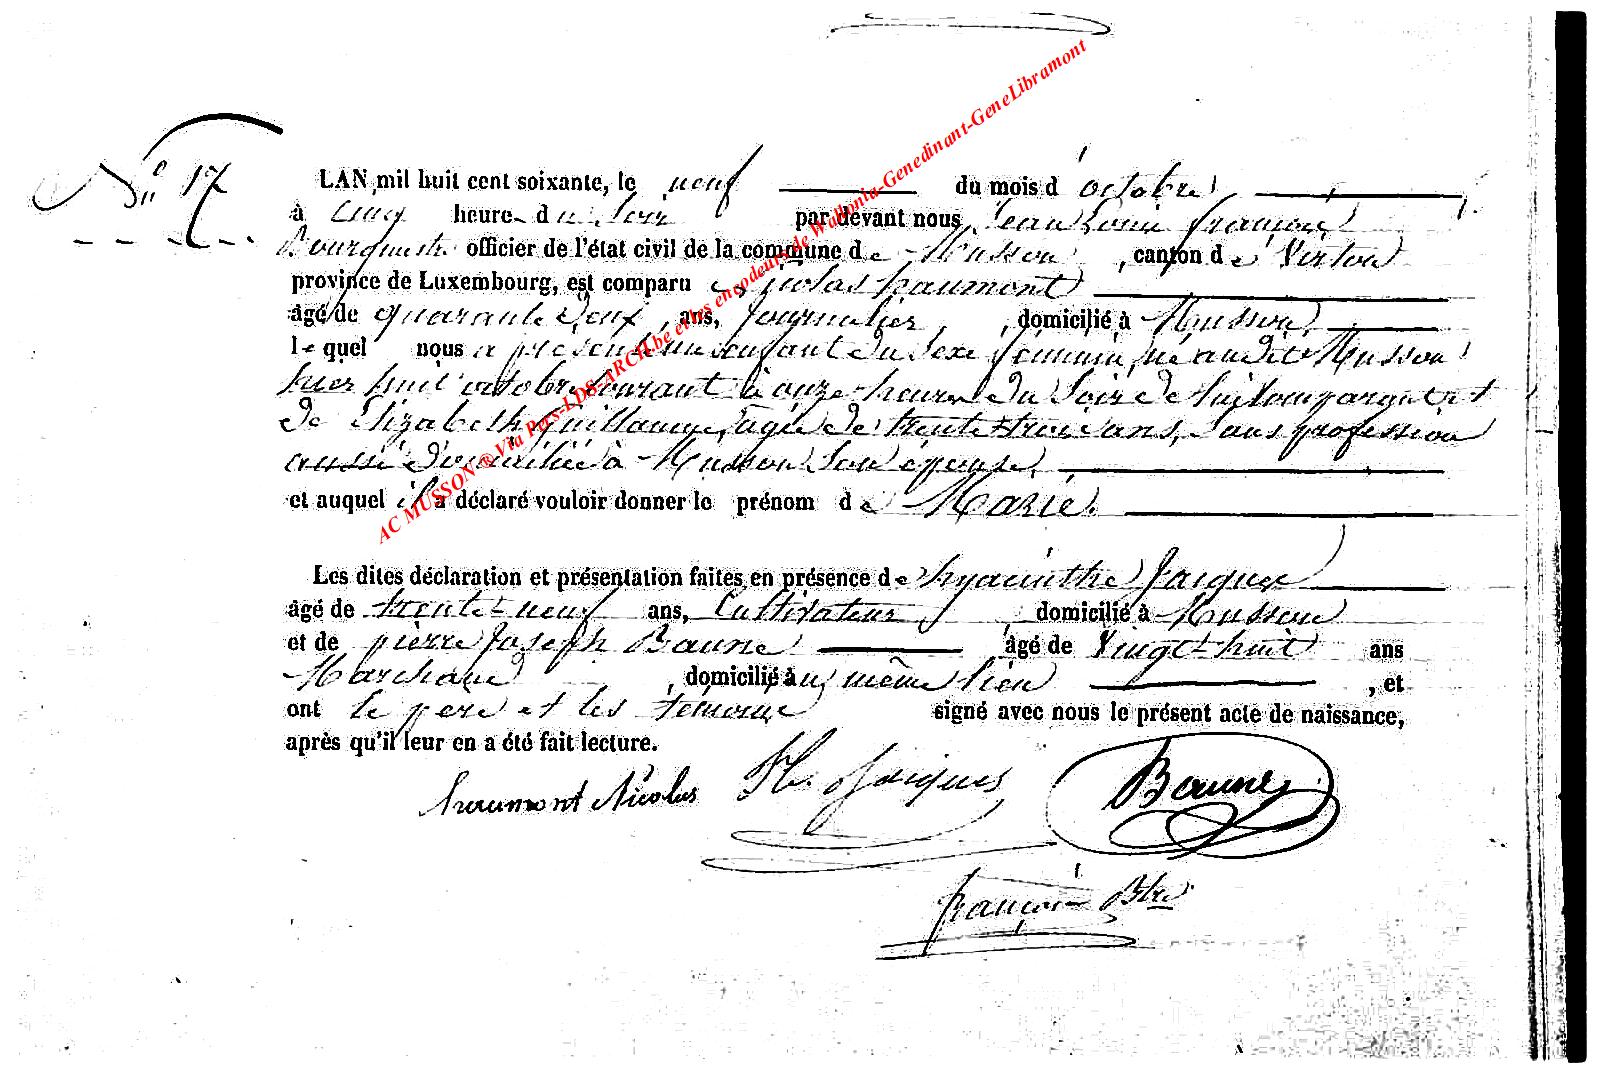 N° 17
LAN mil huit cent soixante, le neuf du mois d'octobre,
à cinq heures du soir par devant nous Jean Louis François
Bourgmestre officier de l'état civil de la commune de Musson, canton de Virton
province de Luxembourg, est comparu Nicolas haumont
âgé de quarante deux ans, Journalier, domicilié à Musson,
lequel nous a présenté un enfant du sexe féminin, né audit Musson
hier huit octobre courant à onze heures du soir de lui comparant et
de Elizabeth guillaume, âgée de trente trois ans, sans profession
aussi domiciliée à Musson son épouse,
et auquel il a déclaré vouloir donner le prénom de Marie.
Les dites déclaration et présentation faites en présence de hyacinthe Jacques
âgé de trente-neuf ans, Cultivateur, domicilié à Musson
et de pierre Joseph Baune âgé de Vingt huit ans
Marchand, domicilié au même lieu, et
ont le père et les témoins signé avec nous le présent acte de naissance,
après qu'il leur en a été fait lecture.
haumont Nicolas H. Jacques Baune
françois Btre
AC MUSSON ® Via Pers-LDS-ARCH.be et les encodeurs de Wallonia-Genedinant-GeneLibramont